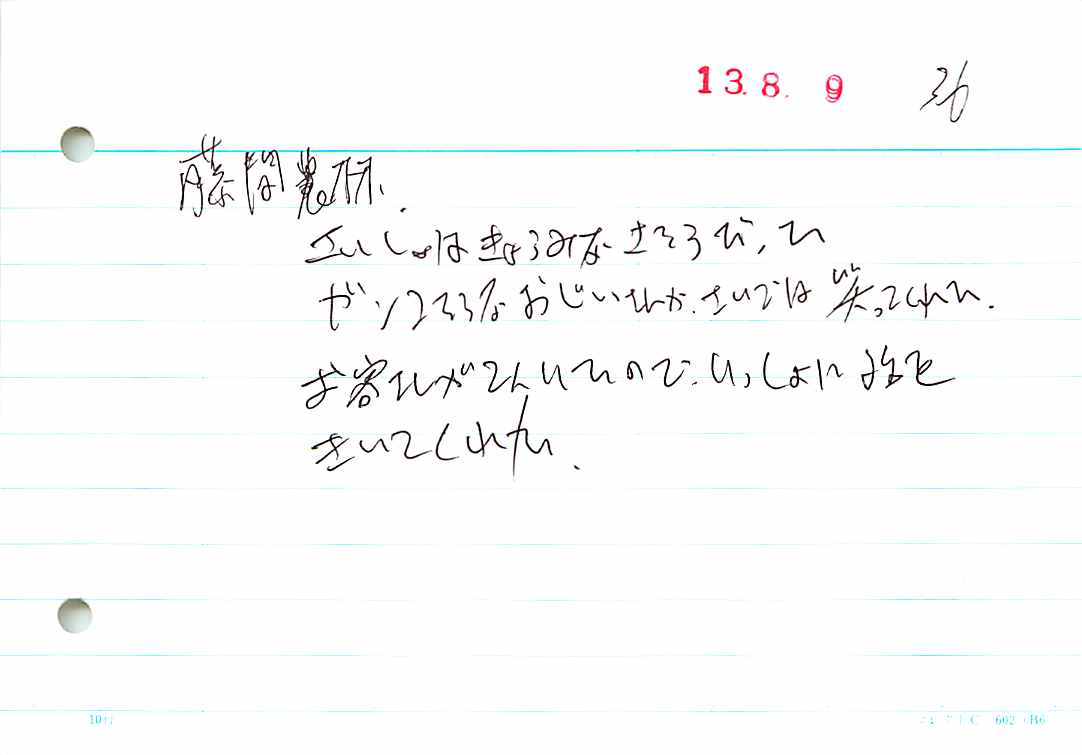 13.8.9 36
藤間農研.
さいしょはきょうみなさそうだった
ガンコそうなおじいさんが.さいごは笑ってくれた.
お客さんがてんしたので.いっしょに話を
きいてくれた.
10行 602 B6